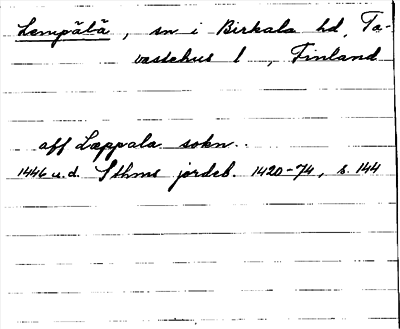 Lempälä, sn i Birkala hd, Ta-
vastehus l, Finland
aff Læppala sokn..
1446 u.d. Sthms jordeb. 1420-74, s. 144